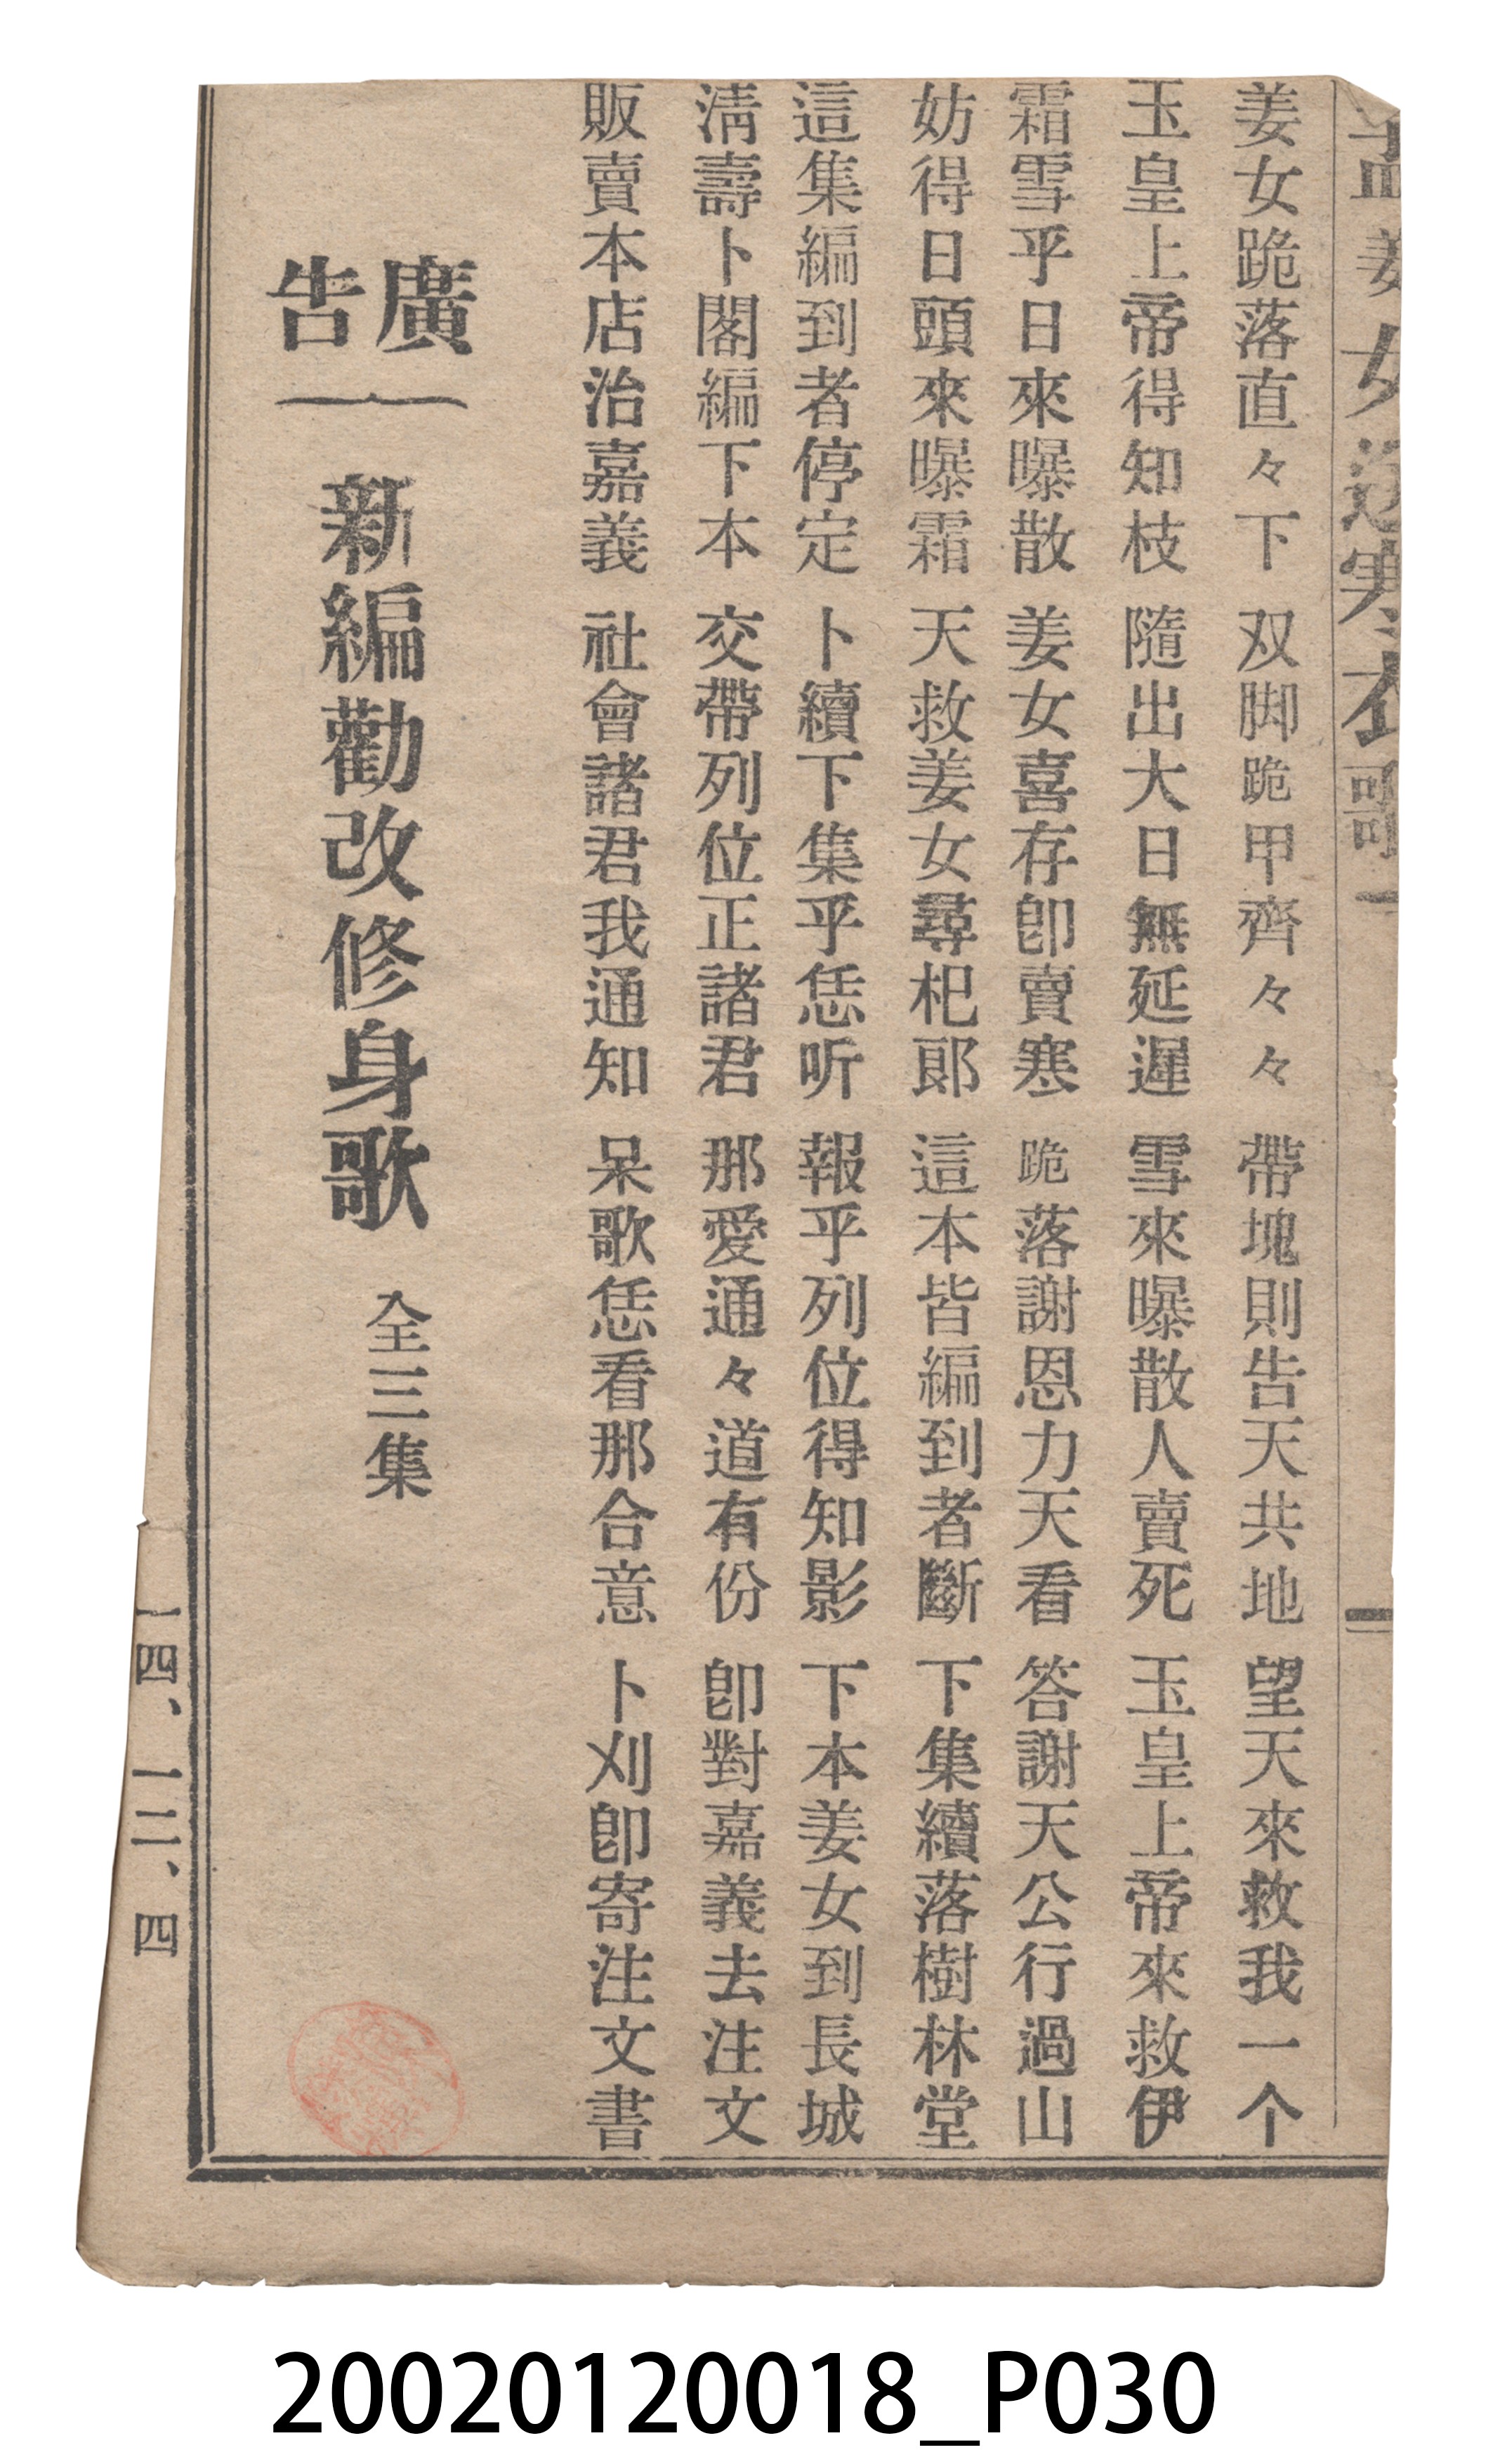 孟姜女送寒衣歌一
姜女跪落直々下 双脚跪甲齊々々 帶塊則告天共地 望天來救我一个
玉皇上帝得知枝 隨出大日無延遲 雪來曝散人賣死 玉皇上帝來救伊
霜雪乎日來曝散 姜女喜存卽賣寒 跪落謝恩力天看 答謝天公行過山
妨得日頭來曝霜 天救姜女尋杞郞 這本皆編到者斷 下集續落樹林堂
這集編到者停定 卜續下集乎恁听 報乎列位得知影 下本姜女到長城
淸壽卜閣編下本 交帶列位正諸君 那愛通々道有份 卽對嘉義去注文
販賣本店治嘉義 社會諸君我通知 呆歌恁看那合意 卜刈卽寄注文書
廣告
新編勸改修身歌 全三集
一四、一二、四
20020120018_P030